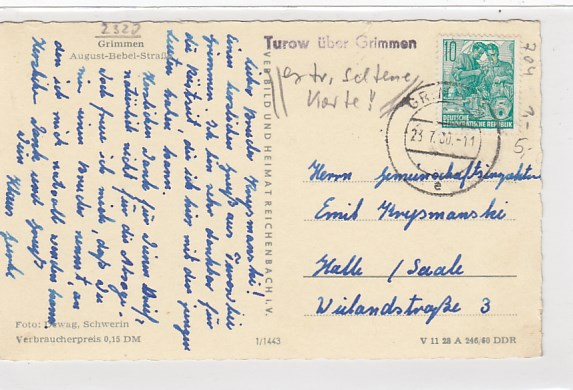 2320
Grimmen
August-Bebel-Straß
Lieber Bruder Krysmanski!
Einen herzlichen Gruß aus Turow bei
Grimmen. Ich bin sehr dankbar für
die Rüstzeit, die ich hier mit den jungen
Leuten haben kann.
Herzlichen Dank für Deinen Brief
natürlich nicht für die Absage.
Doch freu ich mich, daß Du
mir einen Bruder nennst, an
den ich mich wenden kann
Herzliche Dank und Gruß
Dein Klaus
Foto: Dewag, Schwerin
Verbraucherpreis 0,15 DM
VERBILD UND HEIMAT REICHENBACH I. V.
1/1443
Turow über Grimmen
extr. Seltene
Karte!
10
DEUTSCHE
DEMOKRATISCHE REPUBLIK
704
1.-
5.-
23.7.60.-11
e
Herrn
Emil Krysmanski
Halle / Saale
Wielandstraße 3
V 11 28 A 246/60 DDR